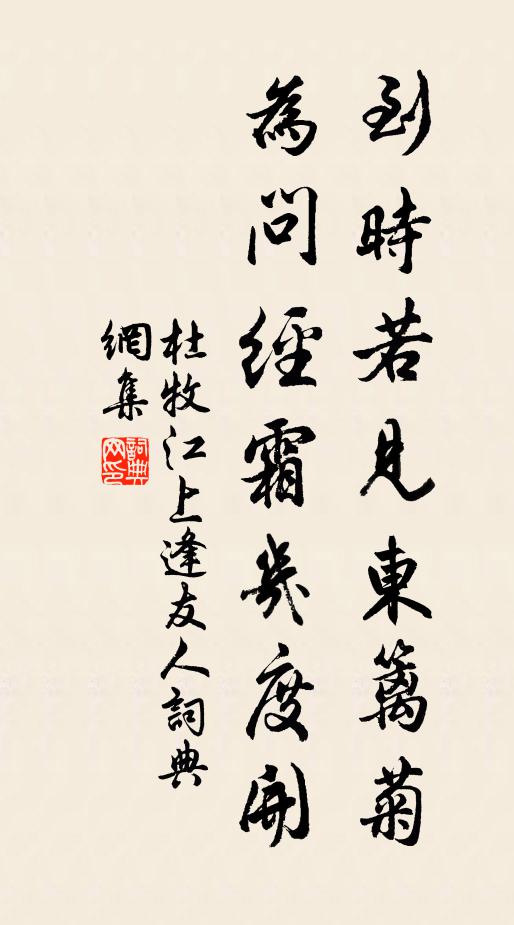 到時若見東籬菊
為問經霜幾度開
杜牧江上逢友人詞典
網集
詞典网印